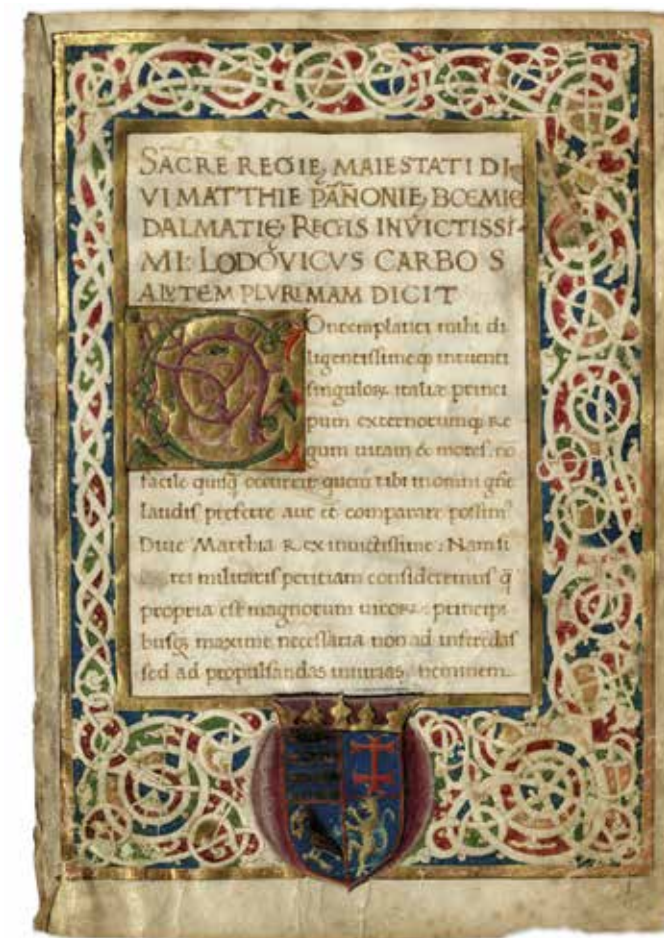 SACRE REGIE, MAIESTATI DI-
VI MATTHIE PAÑONIE, BOEMIE
DALMATIĘ REGIS INVICTISSI-
MI: LODOVICVS CARBO S
ALVTEM PLVRIMAM DICIT
COntemplanti mihi di
ligentissimeqꝫ intuenti
singuloꝝ italiæ princi
pum externorumqꝫ Re
gum uitam & mores: nō
facile quisq̄ occurrit quem tibi in omni gñe
laudis preferre aut et comparare possim?
Diue Matthia Rex inuictissime: Nam si
rei militaris peritiam consideremus q̄
propria est magnorum uiroꝝ: principi
busqꝫ maxime necessaria non ad inferēdas
sed ad propulsandas iniurias neminem